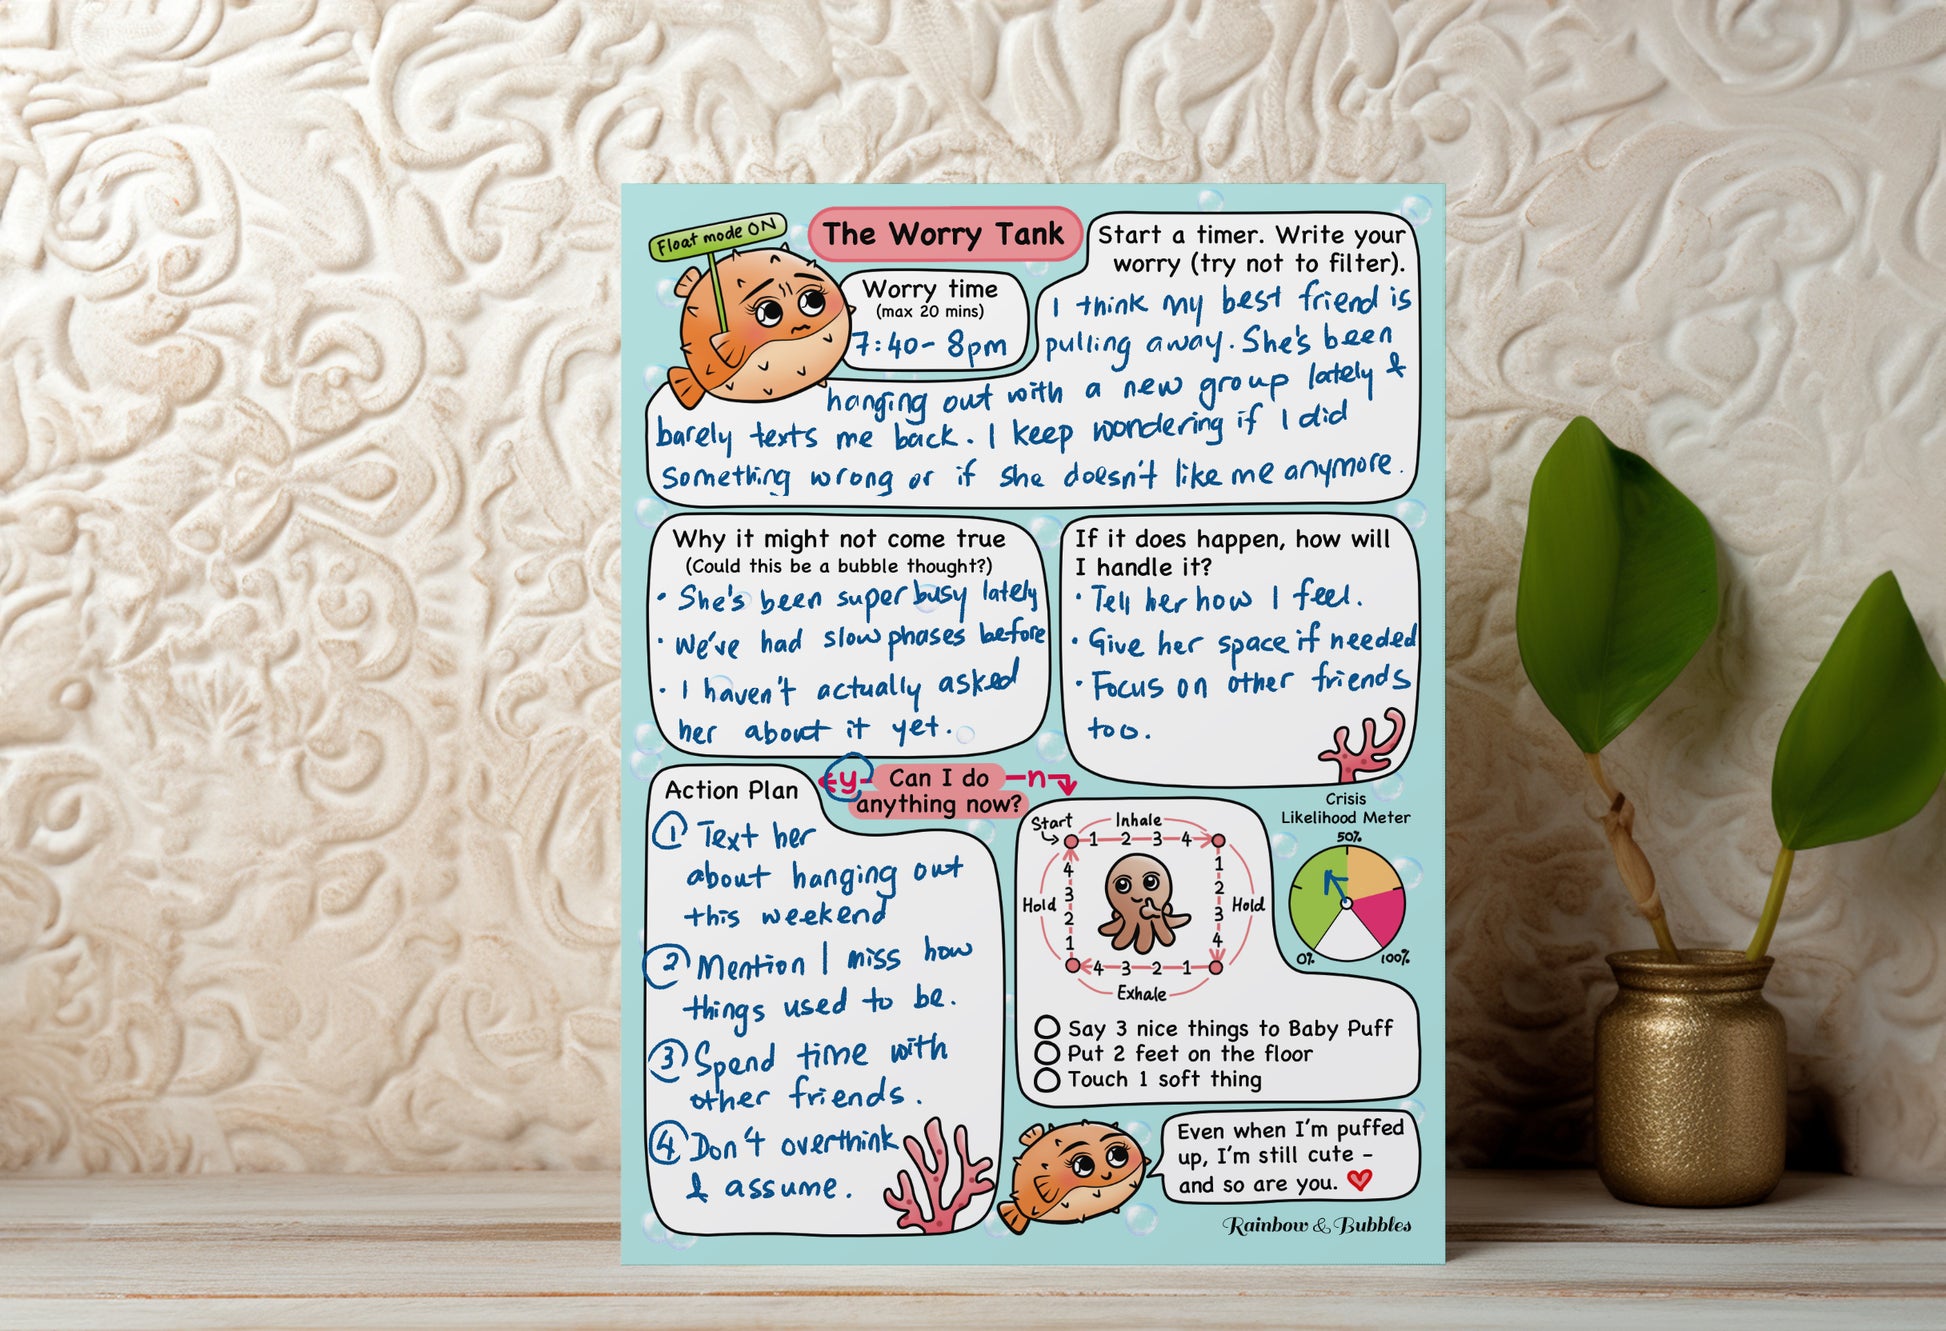 Float mode ON
The Worry Tank
Worry time
(max 20 mins)
7:40- 8pm
Start a timer. Write your
worry (try not to filter).
I think my best friend is
pulling away. She's been
hanging out with a new group lately &
barely texts me back. I keep wondering if I did
something wrong or if she doesn't like me anymore.
Why it might not come true
(Could this be a bubble thought?)
• She's been super busy lately
• We've had slow phases before
• I haven't actually asked
her about it yet.
If it does happen, how will
I handle it?
• Tell her how I feel.
• Give her space if needed
• Focus on other friends
too.
y
Can I do
anything now?
n
Action Plan
1 Text her
about hanging out
this weekend
2 Mention I miss how
things used to be.
3 Spend time with
other friends.
4 Don't overthink
& assume.
Start
Inhale
1 2 3 4
Hold
1
2
3
4
Exhale
4 3 2 1
Hold
4
3
2
1
Crisis
Likelihood Meter
50%
0%
100%
Say 3 nice things to Baby Puff
Put 2 feet on the floor
Touch 1 soft thing
Even when I'm puffed
up, I'm still cute -
and so are you.
Rainbow & Bubbles